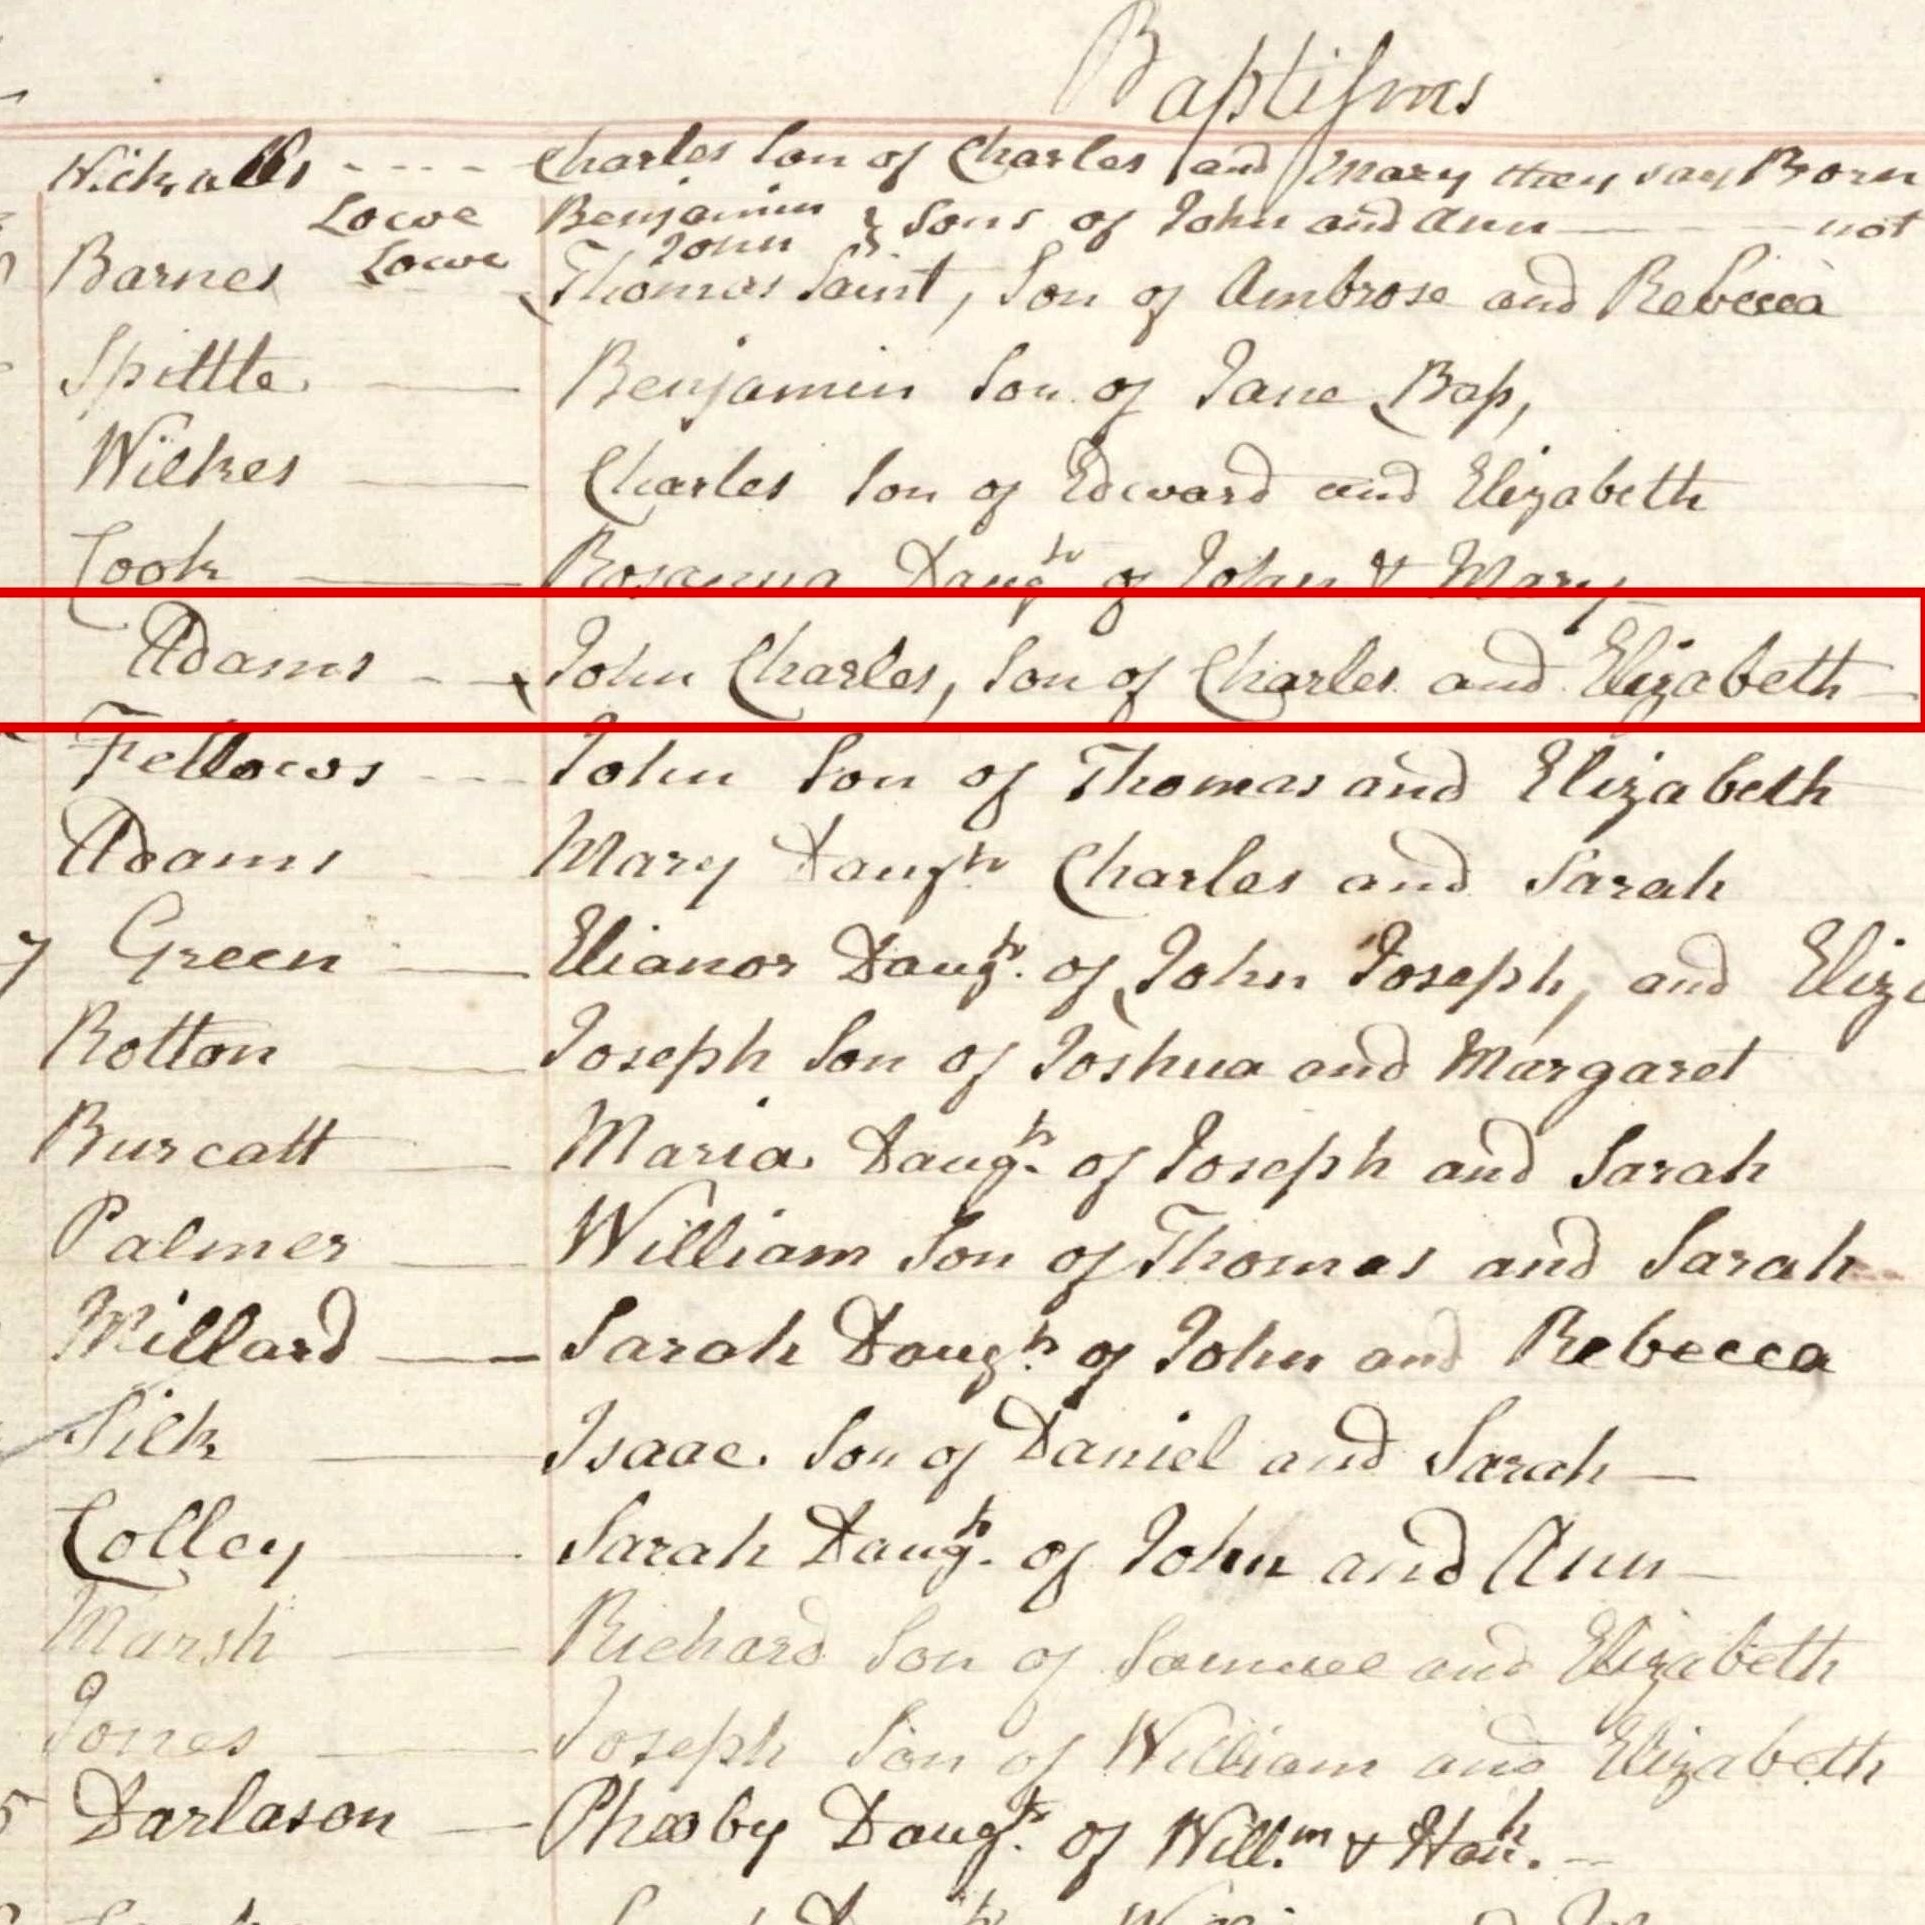 Baptisms
Nickalls - - - - Charles Son of Charles and Mary they say Born
Lowe Benjamin } Sons of John and Ann — — — not
Lowe John }
Barnes - - Thomas Saint, Son of Ambrose and Rebecca
Spittle — Benjamin Son of Jane Bap,
Wilkes — Charles Son of Edward and Elizabeth
Cook — Rosanna Daugtr of John & Mary
Adams - - John Charles, Son of Charles and Elizabeth —
Fellows - - - John Son of Thomas and Elizabeth
Adams - - Mary Daughtr Charles and Sarah
7 Green — Elianor Daugtr. of John Joseph, and Eliza
Rotton — Joseph Son of Joshua and Margaret
Burcatt — Maria Daugtr. of Joseph and Sarah
Palmer — William Son of Thomas and Sarah
Millard — Sarah Daugtr. of John and Rebecca
Silk — Isaac. Son of Daniel and Sarah —
Colley — Sarah Daugtr. of John and Ann —
Marsh — Richard Son of Samuel and Elizabeth
Jones — Joseph Son of William and Elizabeth
5 Darlason — Phœby Daugtr. of Will.m & Hanh. —